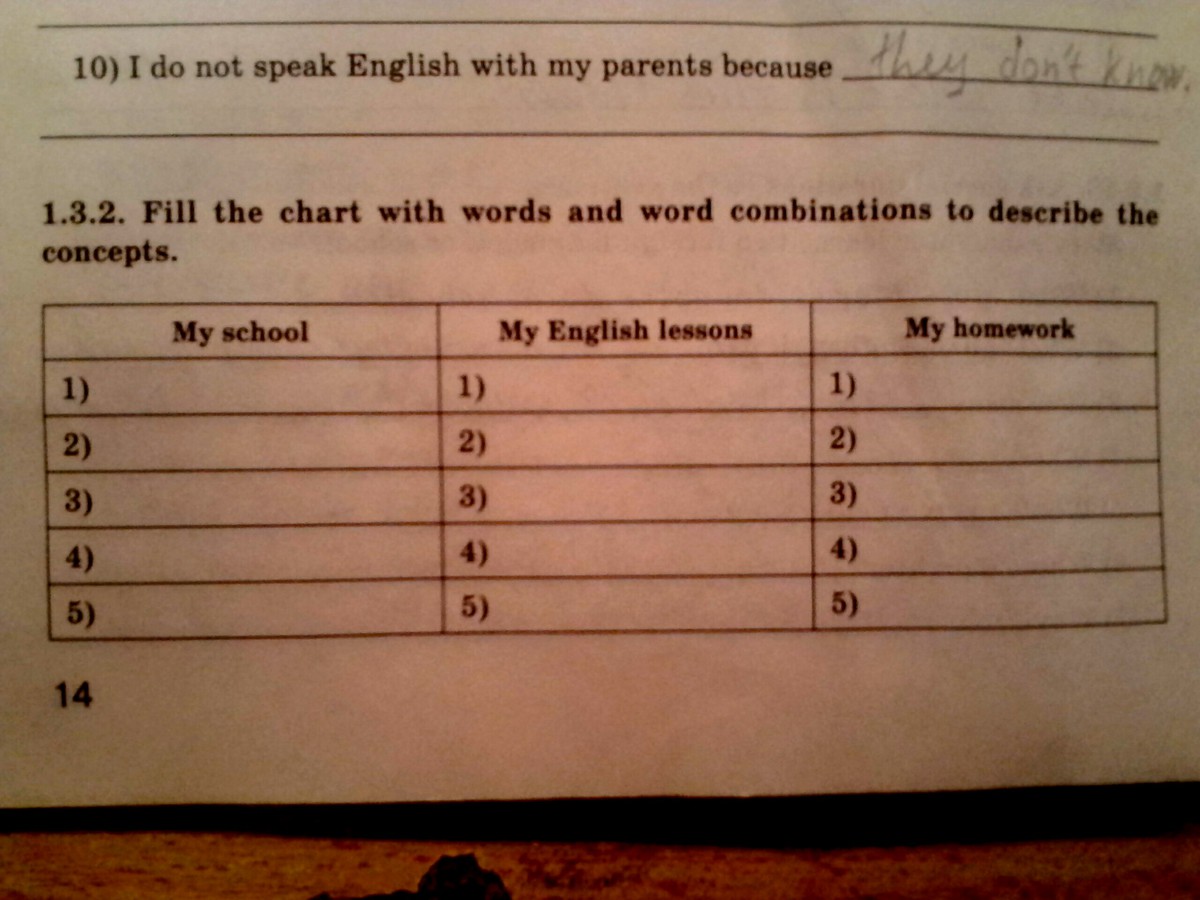 10) I do not speak English with my parents because they don't know.
1.3.2. Fill the chart with words and word combinations to describe the
concepts.
My school My English lessons My homework
1) 1) 1)
2) 2) 2)
3) 3) 3)
4) 4) 4)
5) 5) 5)
14